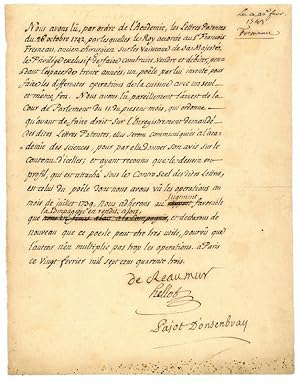 Le 20e fev.
1743
Fresneau
Nous avons lû, par ordre de l'Academie, les Lettres Patentes
du 26 octobre 1742, par lesquelles le Roy accorde au S. François
Fresneau, ancien chirurgien sur les Vaisseaux de sa Majesté,
le Privilége exclusif de faire construire, Vendre et debiter, pen-
dant l'espace de trente années, un poële par luy inventé pour
faire les differentes operations de la cuisine avec un seul
et même feu. Nous avons lû, pareillement l'arrest de la
Cour de Parlement du 11. du présent mois, qui ordonne,
qu'avant de faire droit sur l'Enregistrement demandé
des dites Lettres Patentes, elles seront communiquées à l'aca-
démie des sciences, pour par elle donner son avis sur le
contenu d'icelles; et ayant reconnu que le dessein en
profil, qui est attaché sous le Contrescel des dites lettres,
est celui du poële dont nous avons vû les operations au
mois de juillet 1739. Nous adherons au jugement favorable
que la Compagnie en rendit alors, et declarons de
nouveau que ce poesle peut être très utile, pourvû que
l'auteur n'en multiplie pas trop les operations. à Paris
ce Vingt fevrier mil sept cent quarente trois.
de Reaumur
hellot
Pajot D'onsenbray